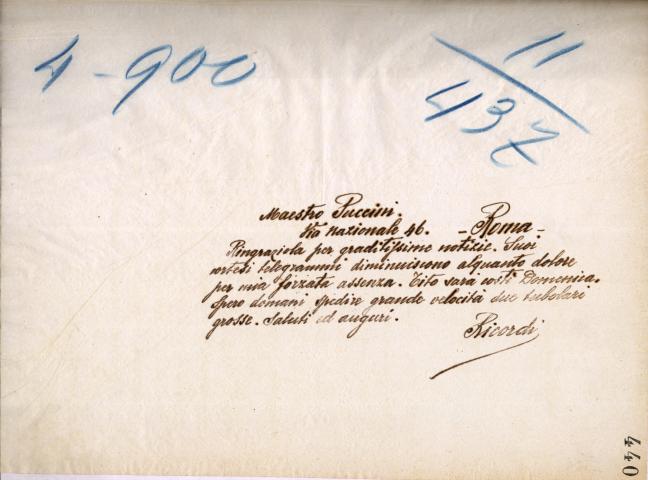 4-900
11
437
Maestro Puccini.
Via Nazionale 46. - Roma -
Ringraziola per graditissime notizie. Suoi
cortesi telegrammi diminuiscono alquanto dolore
per mia forzata assenza. Tito sarà costì Domenica.
Spero domani spedire grande velocità due tubolari
grosse. Saluti ed auguri.
Ricordi
440